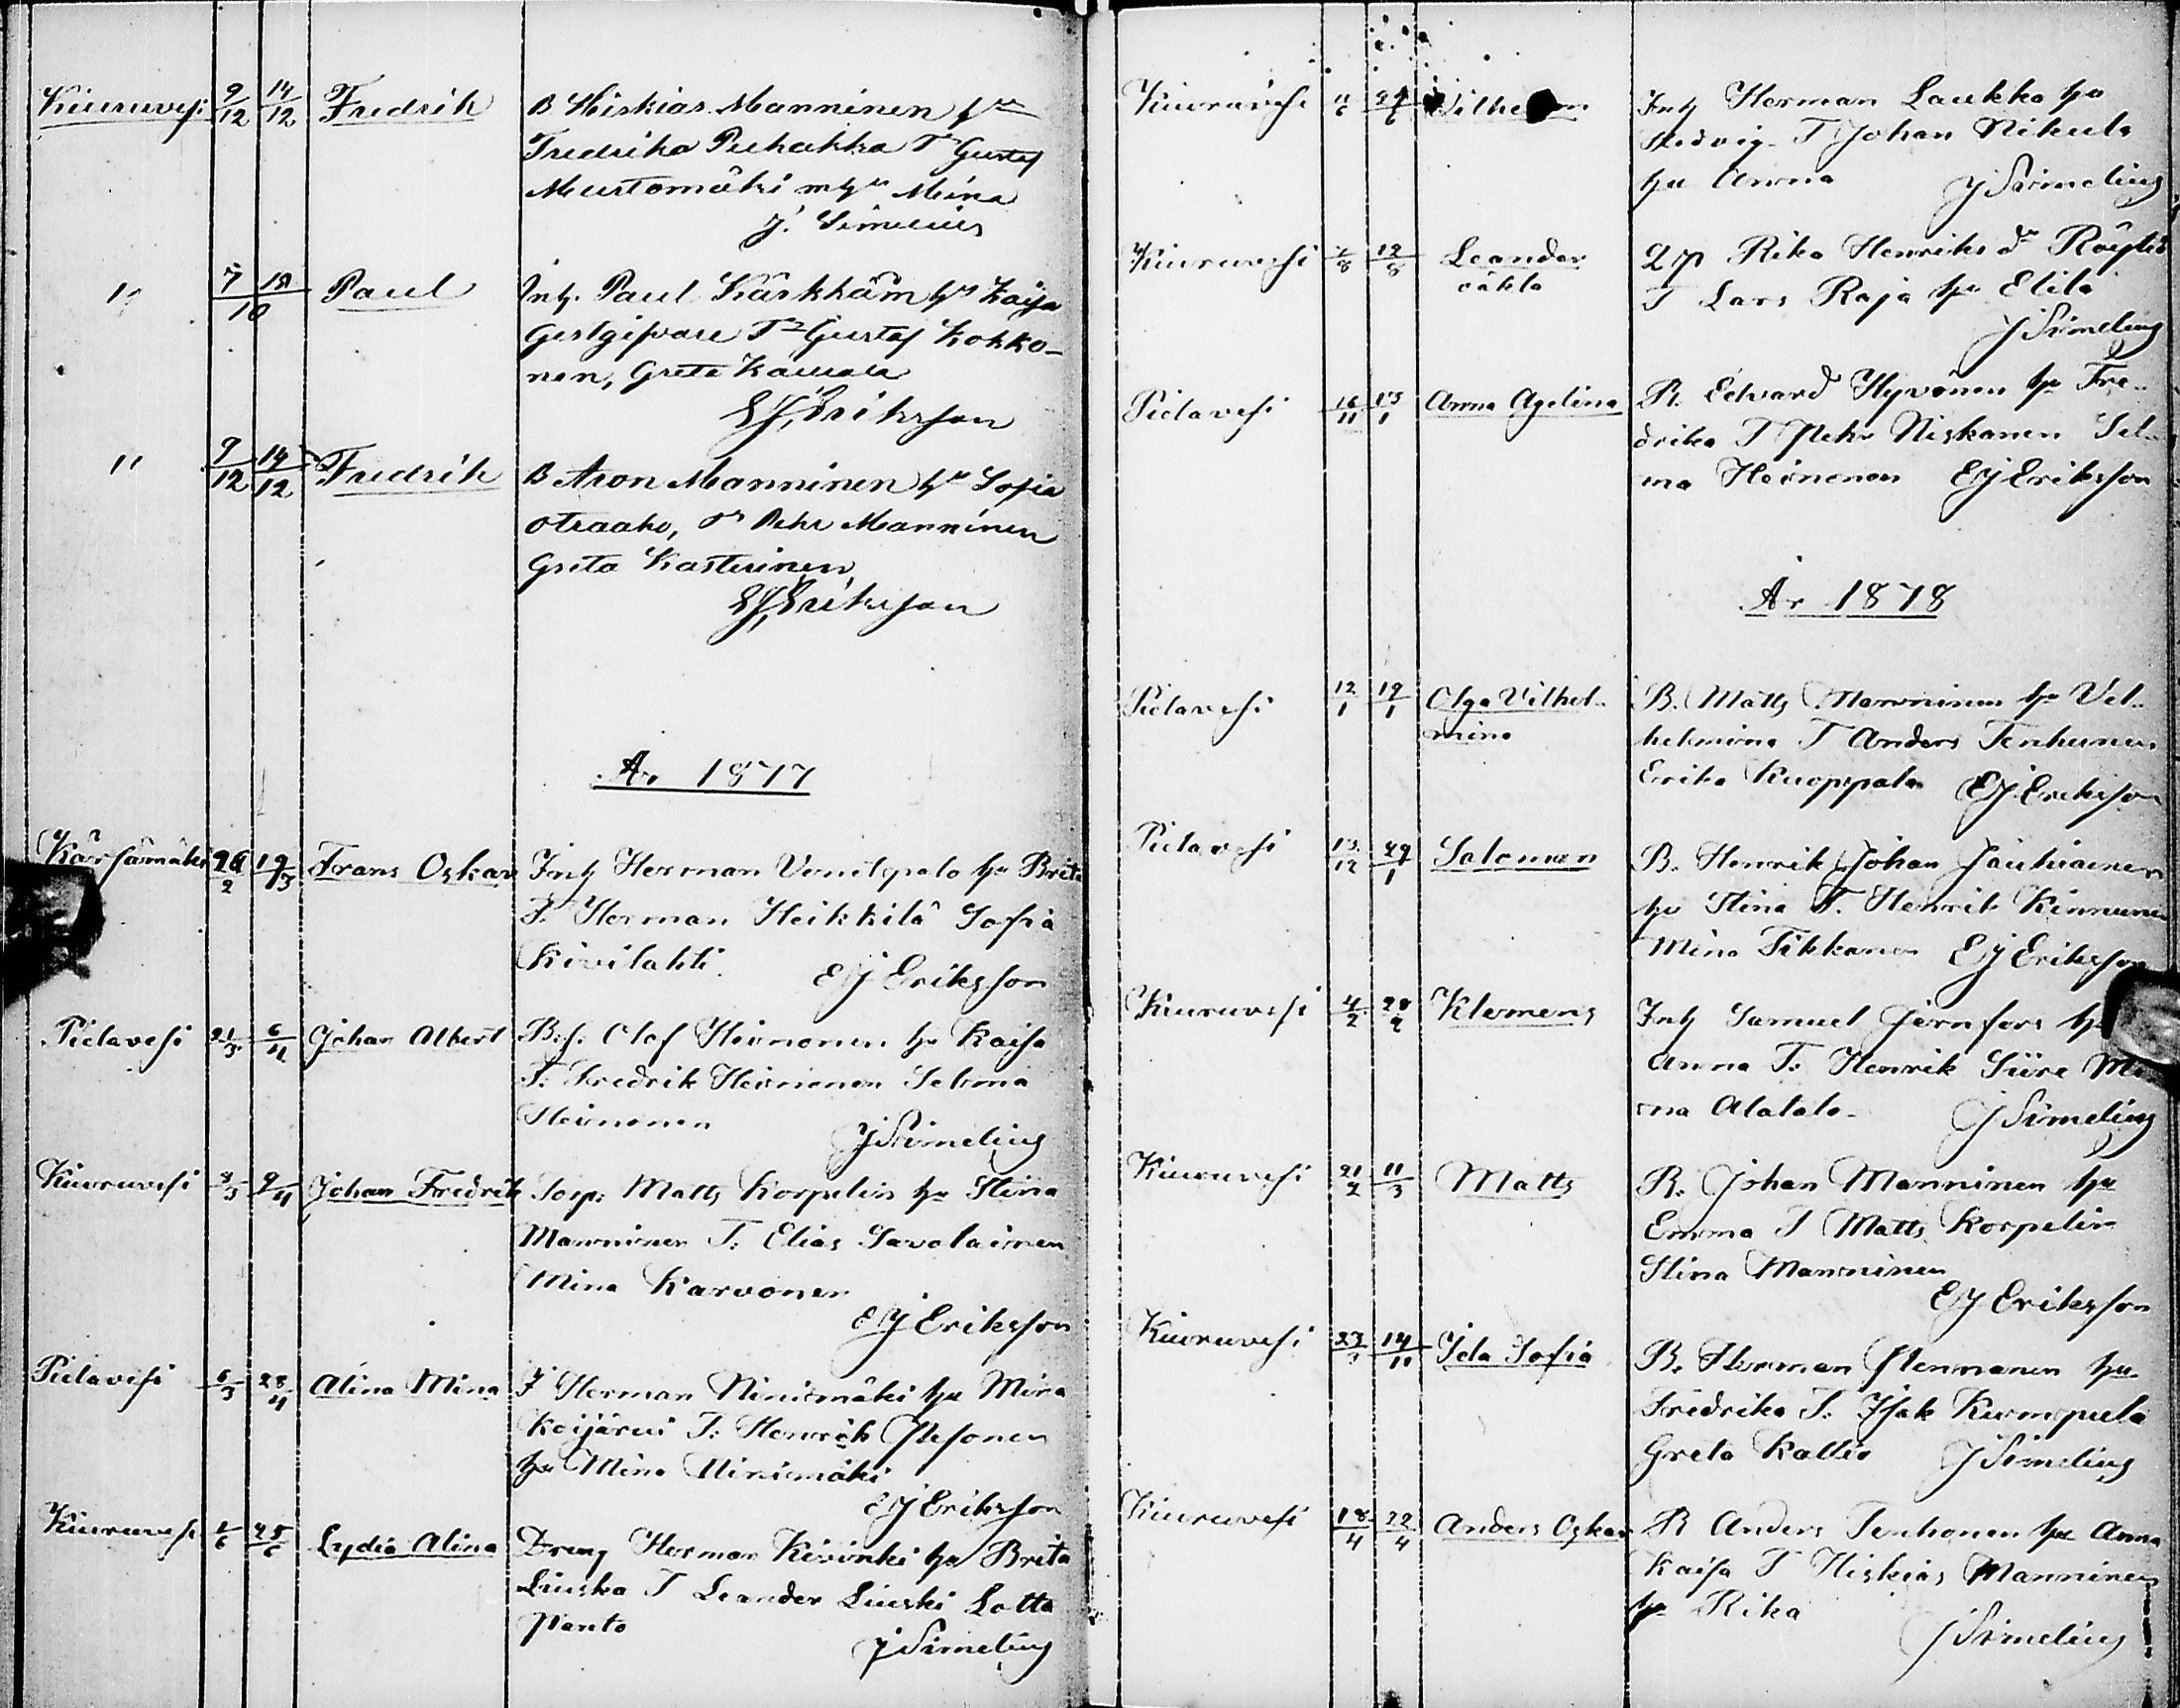 Kiuruvesi 9/12 14/12 Fredrik B Hiskias Manninen hu
Fredrika Puhakka T Gustaf
Mustomäki m hu Mina
J. Simelius
" 7 18/10 Paul Inh. Paul Kärkkäin hu Kaisa
Gestgifvare T Gustaf Kokko-
nen, Greta
EJ Eriksson
" 9/12 14/12 Fredrik B Aron Manninen hu Sofia
Otraaho, T Pehr Manninen
Greta Kasterinen
EJ Eriksson
År 1877
Kärsämäki 26/2 19/3 Frans Oskar Inh Herman hu Brita
T. Herman Heikkilä Sofia
Kivilahti. EJ Eriksson
Pielavesi 21/3 6/4 Johan Albert B.s. Olof Heinonen hu Kaisa
T. Fredrik Heinonen Selma
Heinonen
J Simelius
Kiuruvesi 3/3 9/4 Johan Fredrik Torp: Matts Korpelin hu Stina
Manninen T: Elias Savolainen
Mina Karvonen
EJ Eriksson
Pielavesi 6/3 28/4 Alina Mina I Herman Niinimäki hu Mina
Koijärvi T: Henrik
hu Mina Niinimäki
EJ Eriksson
Kiuruvesi 1/6 25/6 Lydia Alina Dreng Herman hu Brita
Liuska T Leander Liuski Lotta
Panto
J Simelius
Kiuruvesi 11/6 24/6 Vilhelm Inh Herman Laukka hu
Hedvig T Johan Nikula
hu Anna J Simelius
Kiuruvesi 7/8 12/8 Leander
oäkta
Qp Rika Henriks dr
T Lars Raja hu Elila
J Simelius
Pielavesi 16/11 13/1 Anna Agelina B. Edvard Hyvönen hu Fre-
drika T Pehr Niskanen Sel-
ma Heinonen EJ Eriksson
År 1878
Pielavesi 12/1 19/1 Olga Vilhel-
mina
B. Matts Manninen hu Vil-
helmina T Anders Tenhunen
Erika Kuoppala EJ Eriksson
Pielavesi 13/12 27/1 Salomon B. Henrik Johan Jauhiainen
hu Stina T. Henrik Kinnunen
Mina Tikkanen EJ Eriksson
Kiuruvesi 4/2 28/2 Klemens Inh Samuel Jernfors hu
Anna T: Henrik Siire Mi
na Alatalo. J Simelius
Kiuruvesi 21/2 11/3 Matts B. Johan Manninen hu
Emma T Matts Korpelin
Stina Manninen
EJ Eriksson
Kiuruvesi 23/3 14/11 Ida Sofia B. Herman hu
Fredrika T: Isak Kurmopuela
Greta Kallio J Simelius
Kiuruvesi 18/4 22/4 Anders Oskar B Anders Tenhonen hu Anna
Kaisa T Hiskias Manninen
hu Rika
J Simelius